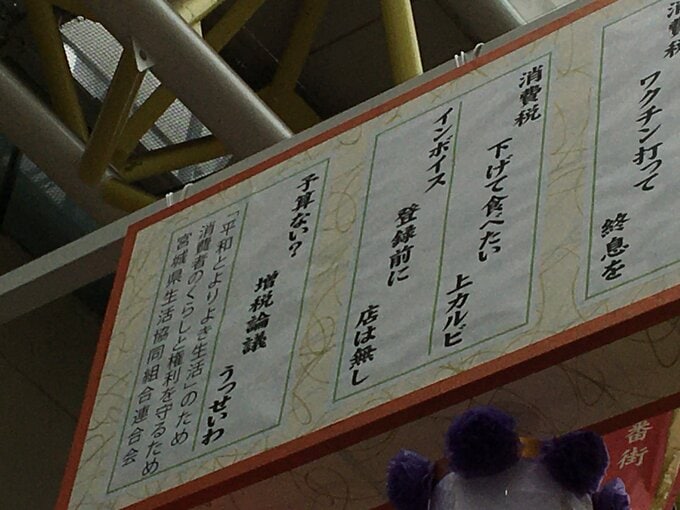 消費税 ワクチン打って 終息を
消費税 下げて食べたい 上カルビ
インボイス 登録前に 店は無し
予算ない? 増税論議 うっせいわ
「平和とよりよき生活」のため
消費者のくらしと権利を守るため
宮城県生活協同組合連合会
番街